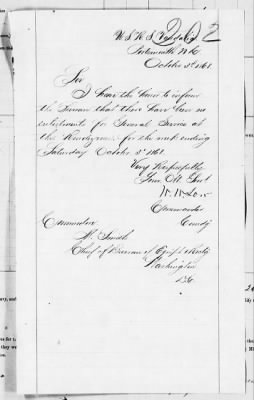 202
U.S.R.S. Vandalia
Portsmouth N.H.
October 3d 1868.
Sir
I have the honor to inform
the Bureau that there have been no
enlistments for General Service at
this Rendezvous for the week ending
Saturday October 3d 1868.
Very Respectfully
Your Obt. Servt
W. W. Low
Commander
Comdg
Commodore
M. Smith
Chief of Bureau of Equipt & Recrtg
Washington
D.C.